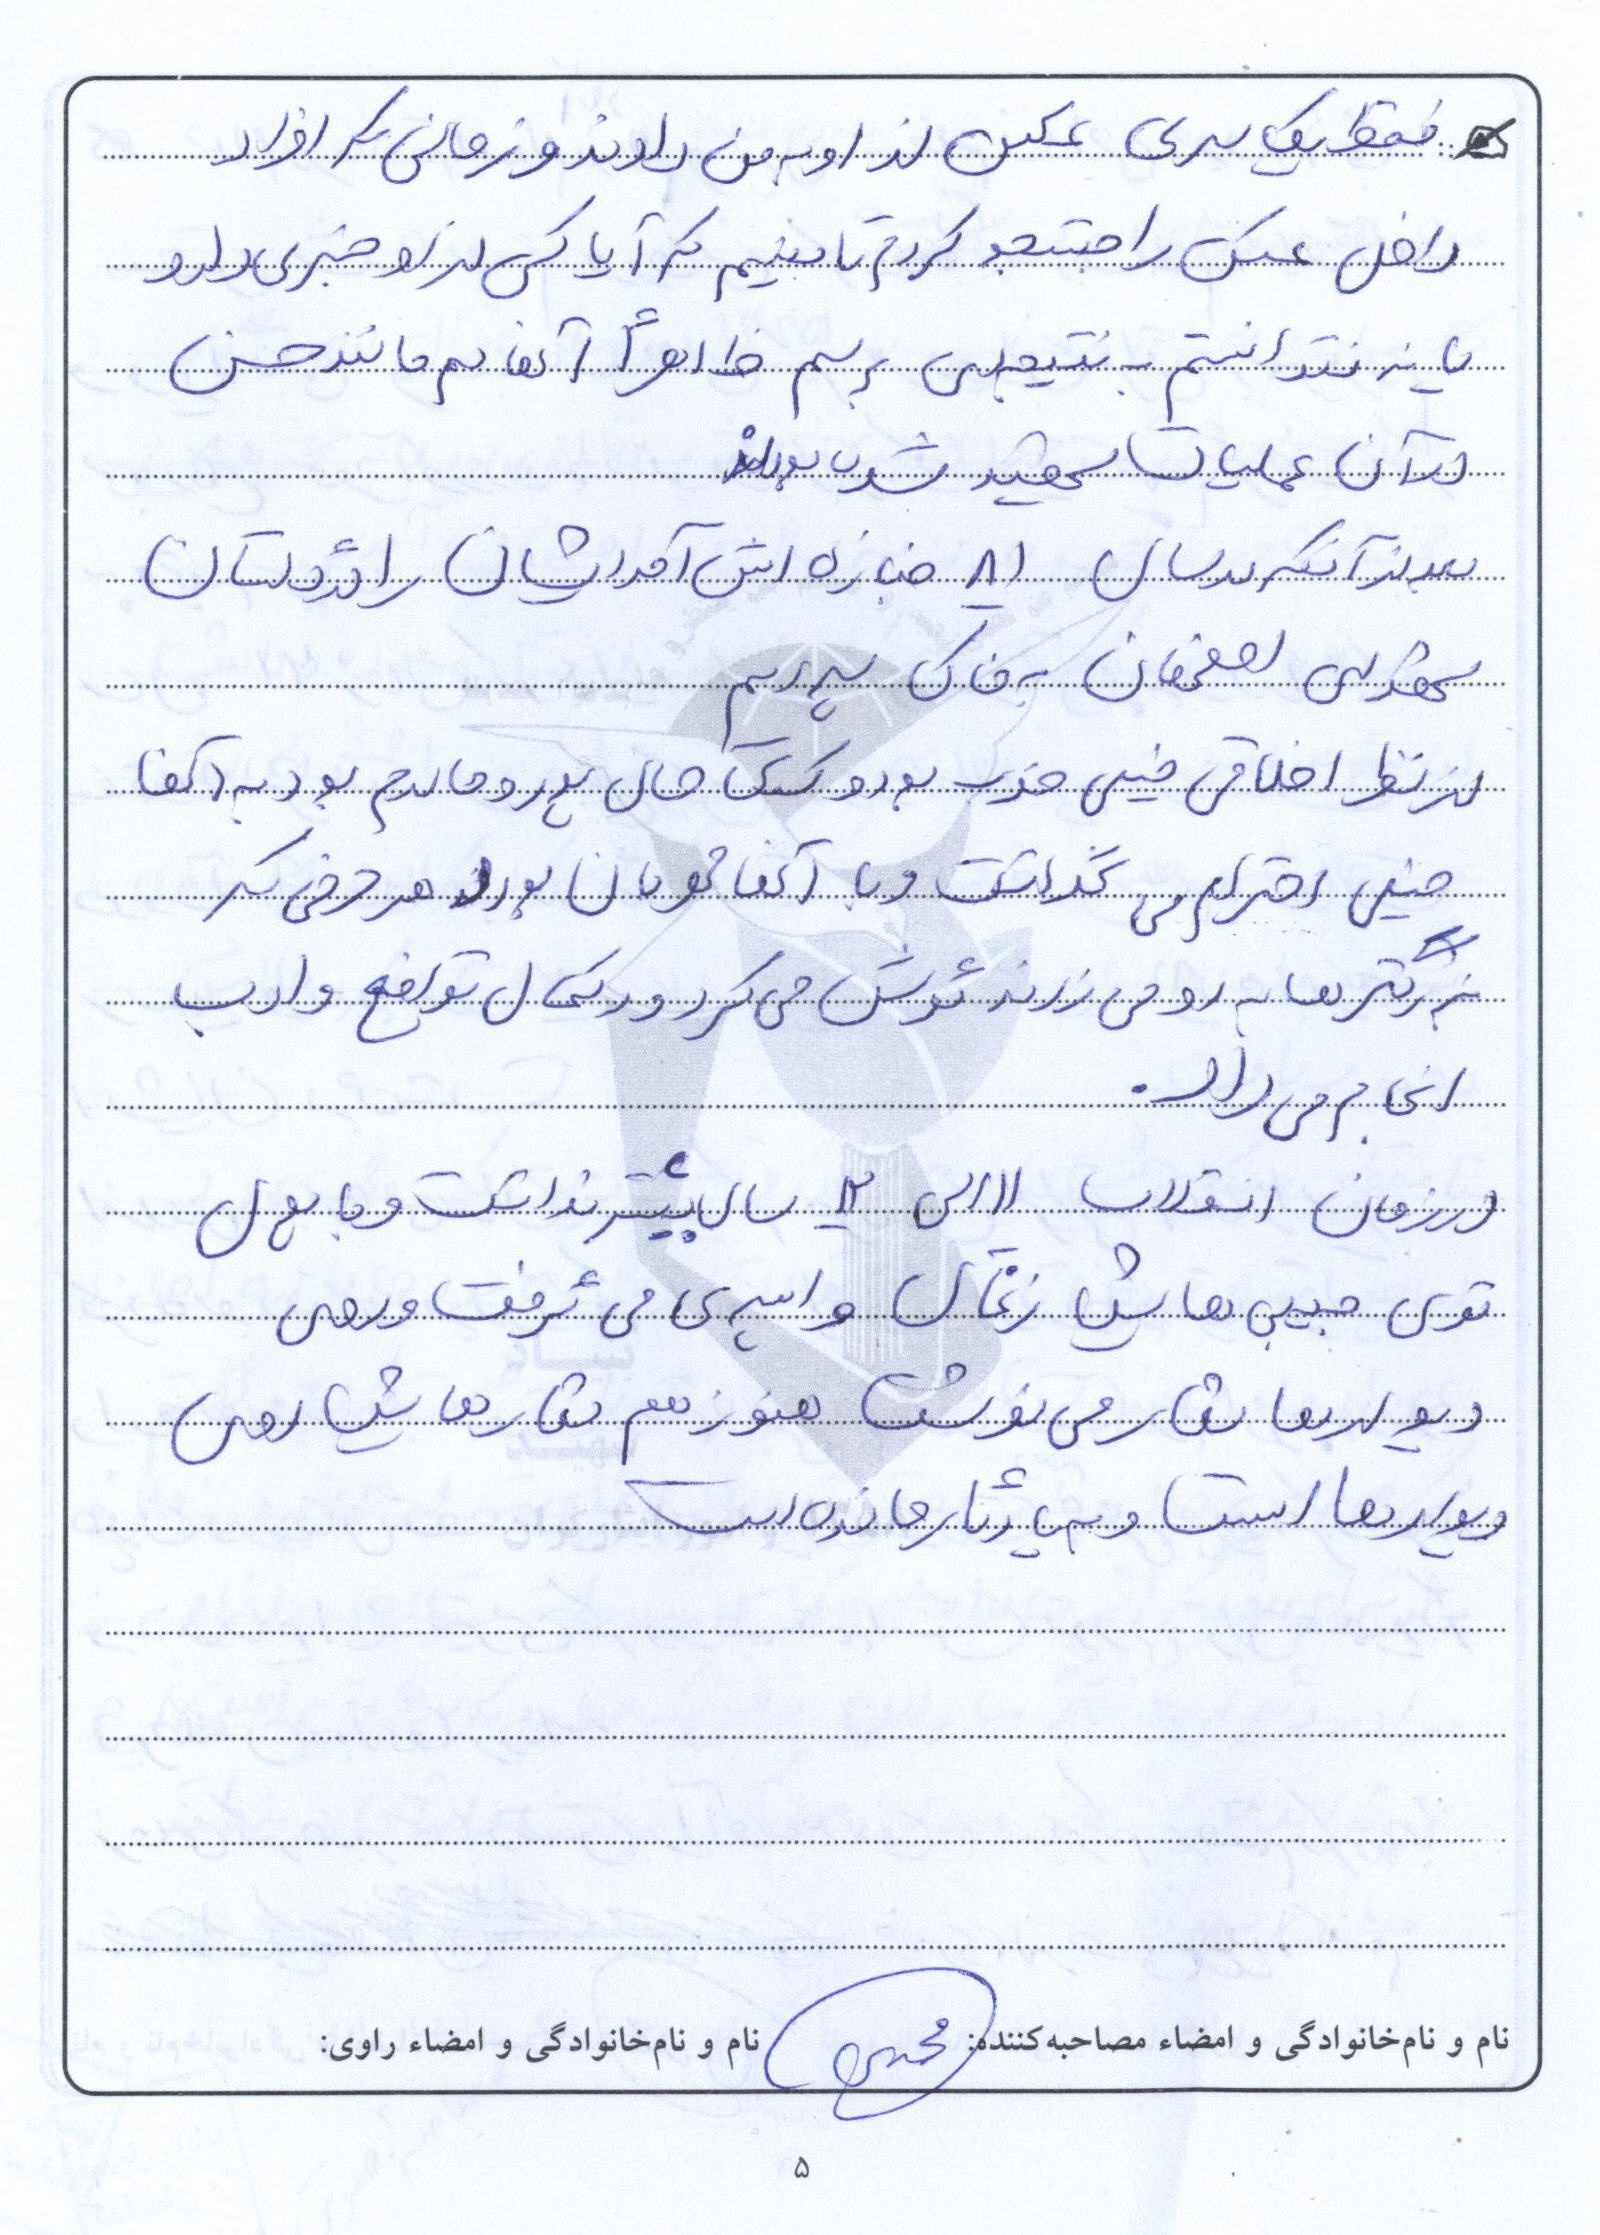 فقط یک سری عکس از او به من دادند و زمانی که افراد
داخل عکس را جستجو کردم تا ببینم که آیا کسی از او خبری دارد
یا نه نتوانستم به نتیجه‌ای برسم ظاهراً آنها هم مانند حسن
در آن عملیات شهید شده بودند
بعد از آنکه در سال ۸۱ جنازه اش آمد ایشان را در گلستان
شهدای اصفهان به خاک سپردیم
از نظر اخلاقی خیلی خوب بود و کمک حال پدر و مادرم بود به آنها
خیلی احترام می گذاشت و با آنها مهربان بود هر حرفی که
بزرگترها به او می زدند گوش می کرد و در کمال تواضع و ادب
انجام می داد.
در زمان انقلاب ۱۱ الی ۱۲ سال بیشتر نداشت و با پول
توی جیبی هایش زغال و اسپری می گرفت و روی
دیوارها شعار می نوشت هنوز هم شعارهایش روی
دیوارها است و به یادگار مانده است
نام و نام‌خانوادگی و امضاء مصاحبه‌کننده:
نام و نام‌خانوادگی و امضاء راوی:
۵